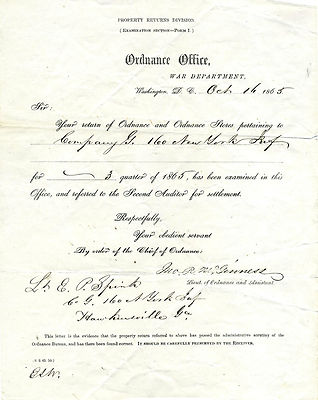 PROPERTY RETURNS DIVISION.
(EXAMINATION SECTION—FORM 1.)
Ordnance Office,
WAR DEPARTMENT,
Washington, D. C. Oct. 16 1865
Sir:
Your return of Ordnance and Ordnance Stores pertaining to
Company G. 160 New York Inf
for 3 quarter of 1865, has been examined in this
Office, and referred to the Second Auditor for settlement.
Respectfully,
Your obedient servant
By order of the Chief of Ordnance:
Jno. R. McGinness
Lieut. of Ordnance and Assistant
Lt. E. P. Spink
Co G. 160 N York Inf
Hawkinsville Ga
This letter is the evidence that the property return referred to above has passed the administrative scrutiny of the
Ordnance Bureau, and has there been found correct. IT SHOULD BE CAREFULLY PRESERVED BY THE RECEIVER.